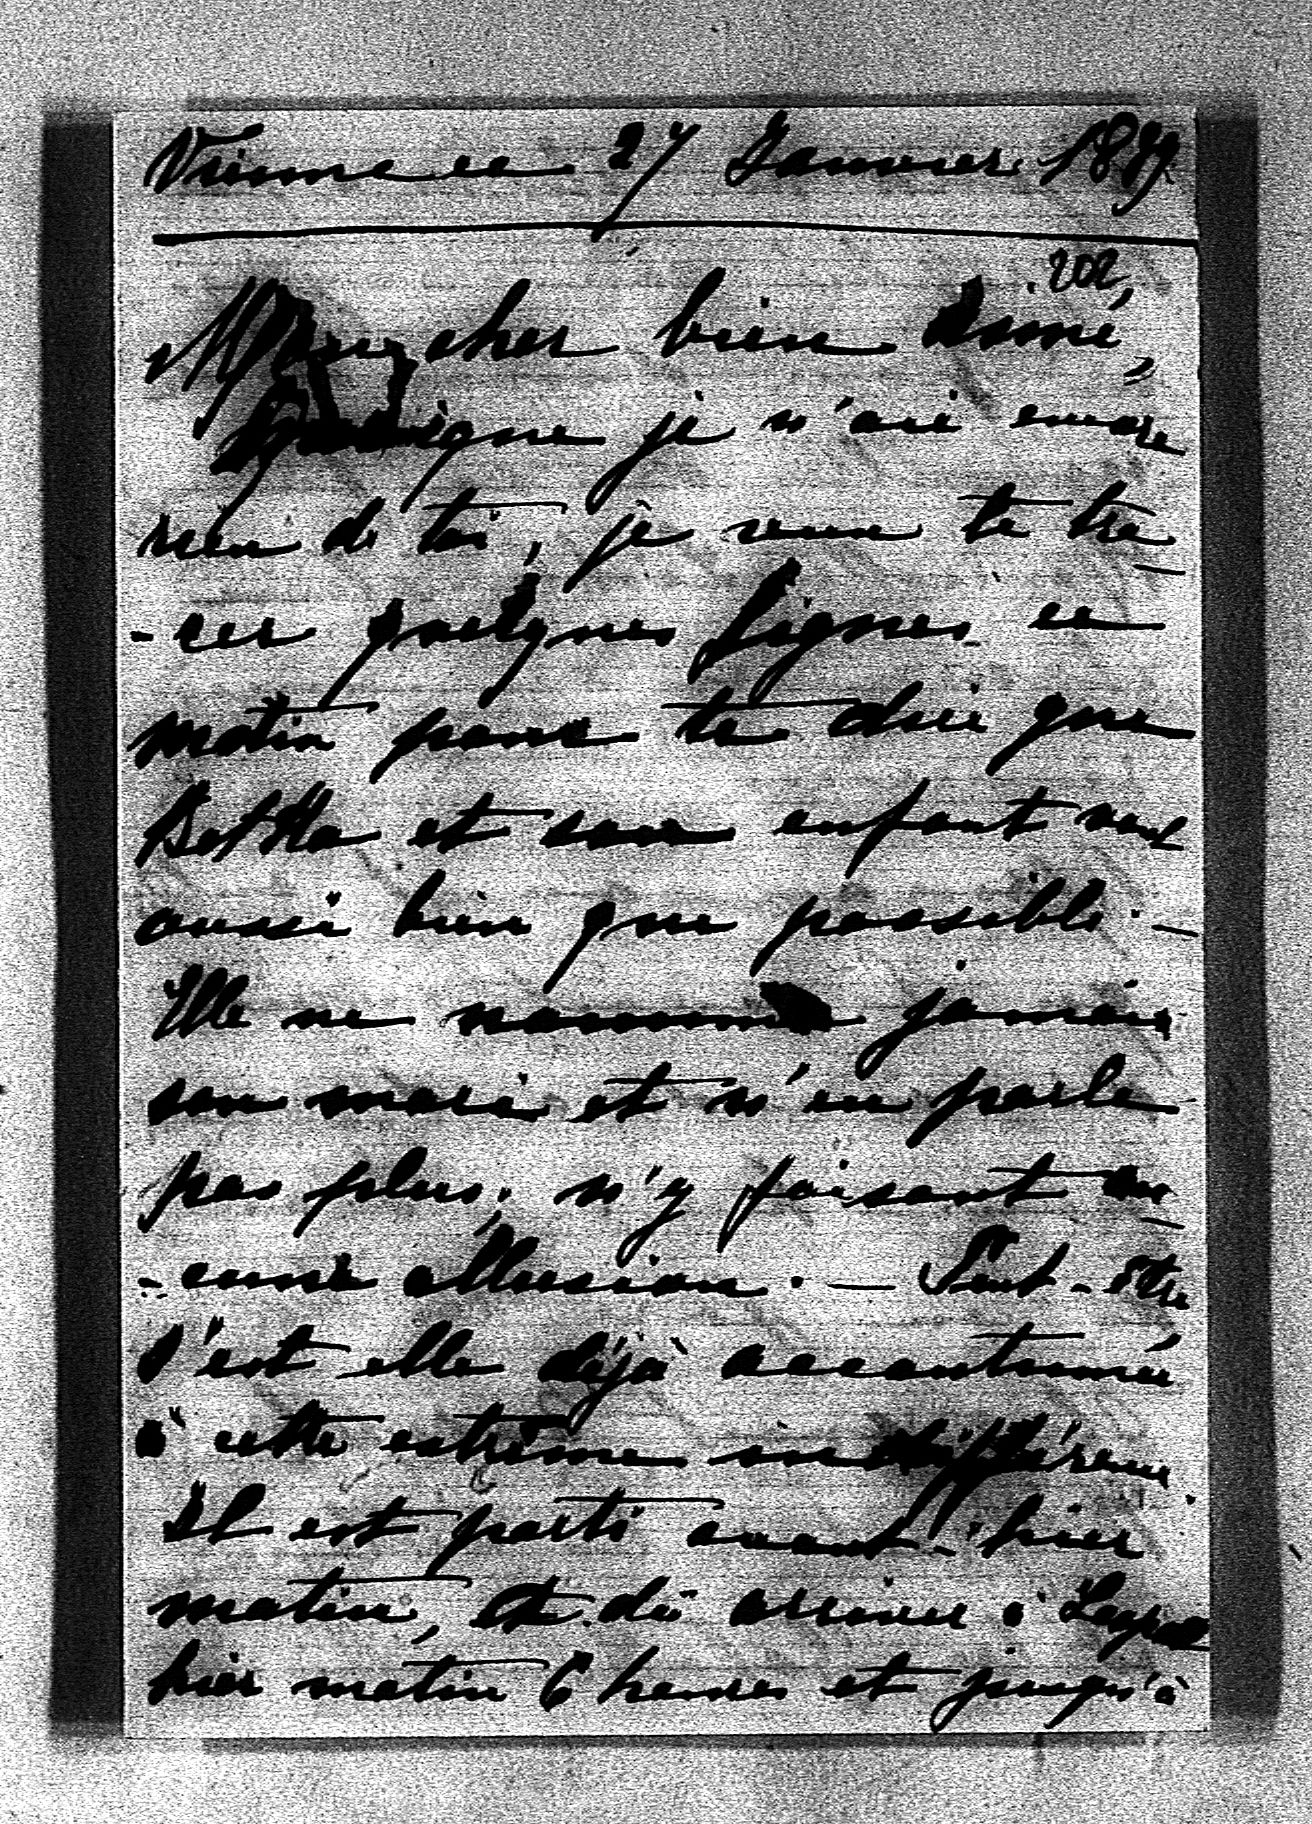 Vienne ce 27 Janvier 1879
202,
Mon cher bien Aimé,
Quoique je n'ai encore
rien de toi, je veux te tra
-cer quelques lignes ce
matin pour te dire que
et son enfant vont
aussi bien que possible. —
Elle ne nomme jamais
son mari et n'en parle
pas plus, n'y faisant au
-cune allusion. — Peut-être
s'est elle déjà accoutumée
à cette extrême indifférence
Il est parti avant-hier
matin, a dû arriver à
hier matin 6 heures et jusqu'à